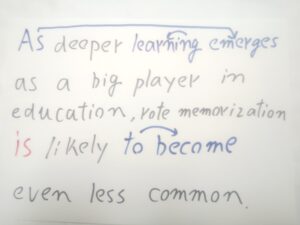 As deeper learning emerges
as a big player in
education, rote memorization
is likely to become
even less common.